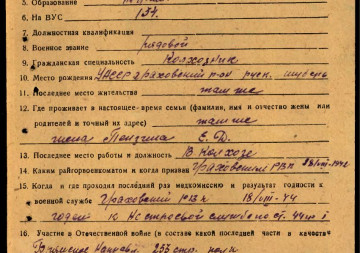 5. Образование
6. На ВУС 134.
7. Должностная квалификация
8. Военное звание рядовой
9. Гражданская специальность Колхозник
10. Место рождения УАССР Граховский р-он
11. Последнее место жительства там же
12. Где проживает в настоящее время семья (фамилия, имя и отчество жены или
родителей и точный их адрес) там же
жена Е. Д.
13. Последнее место работы и должность В Колхозе
14. Каким райгорвоенкоматом и когда призван Граховский РВК 18/VIII-44г
15. Когда и где проходил последний раз медкомиссию и результат годности к
военной службе Граховский РВК 18/VIII-44
годен к Нестроевой службе по ст.
16. Участие в Отечественной войне (в составе какой последней части и в качестве
233 стр. полк